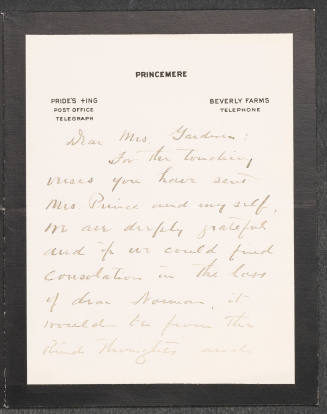 PRINCEMERE
PRIDE'S +ING
POST OFFICE
TELEGRAPH
BEVERLY FARMS
TELEPHONE
Dear Mrs. Gardner:
For the touching
verses you have sent
Mrs Prince and myself,
we are deeply grateful
and if we could find
consolation in the loss
of dear Norman, it
would be from the
kind thoughts and